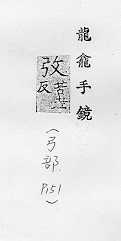 龍龕手鏡
苦
反
(弓部 P151)